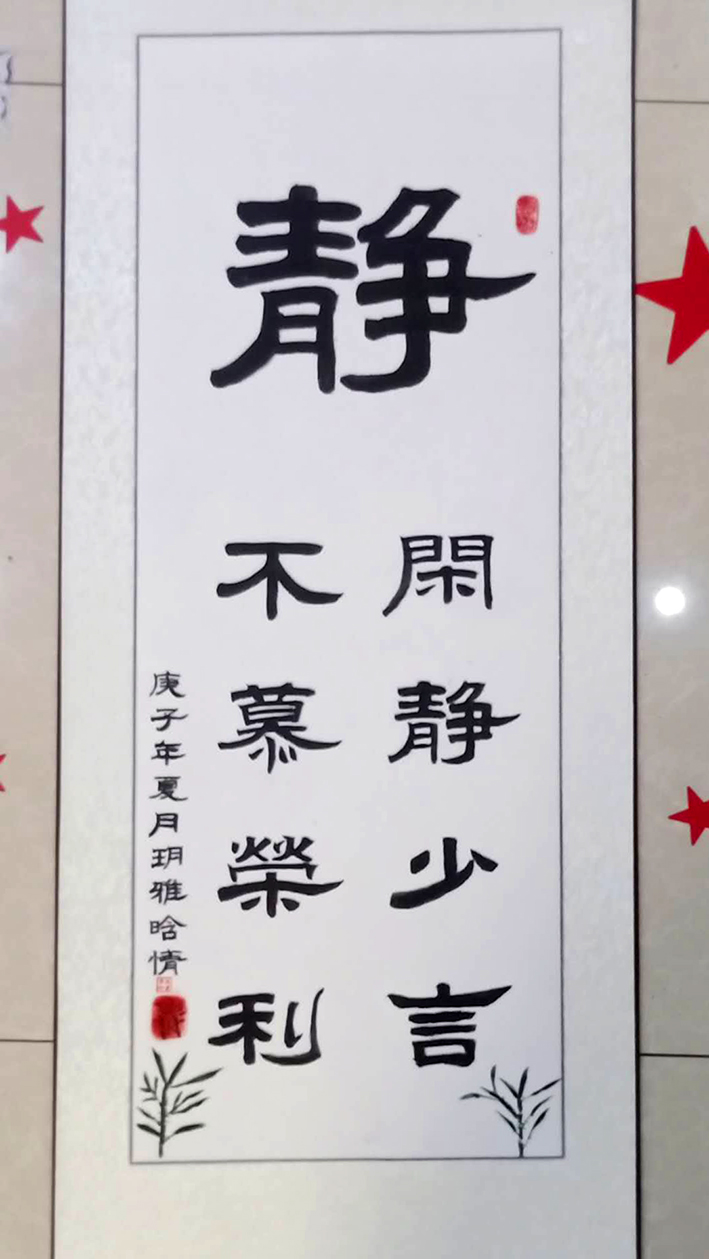 静
閑静少言
不慕榮利
庚子年夏月玥雅晗情